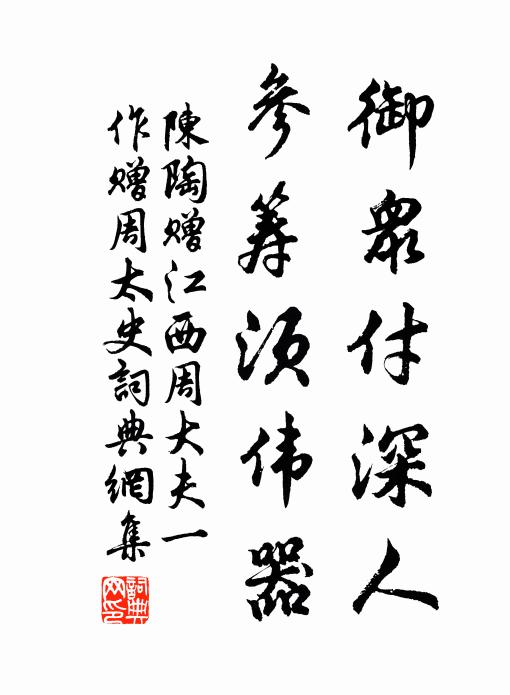 御衆付深人
參筹须伟器
陳陶贈江西周大夫一
作贈周太史詞典網集
詞典网印